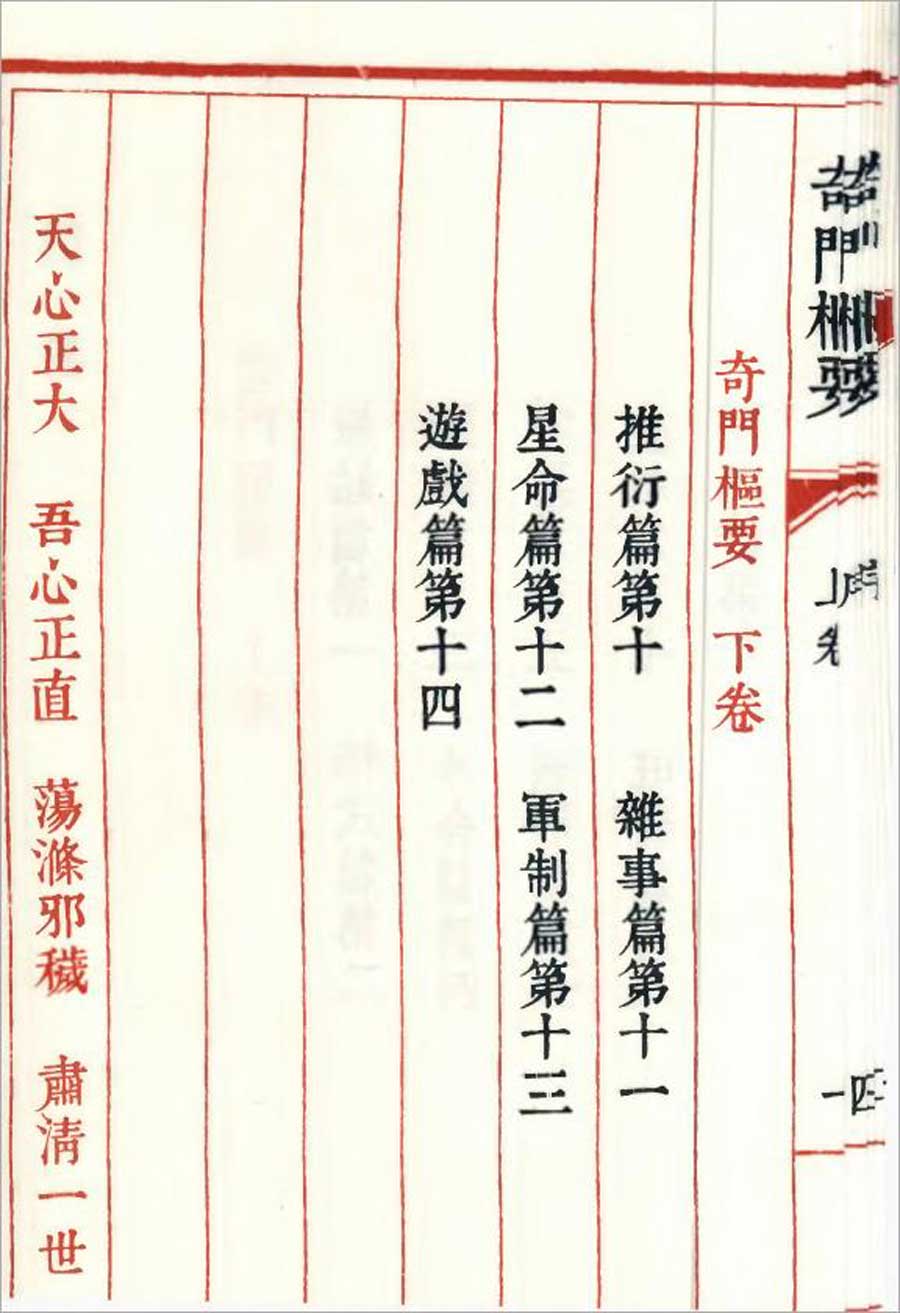 奇門樞要 下卷
推衍篇第十 雜事篇第十一
星命篇第十二 軍制篇第十三
遊戲篇第十四
天心正大 吾心正直 蕩滌邪穢 肅清一世